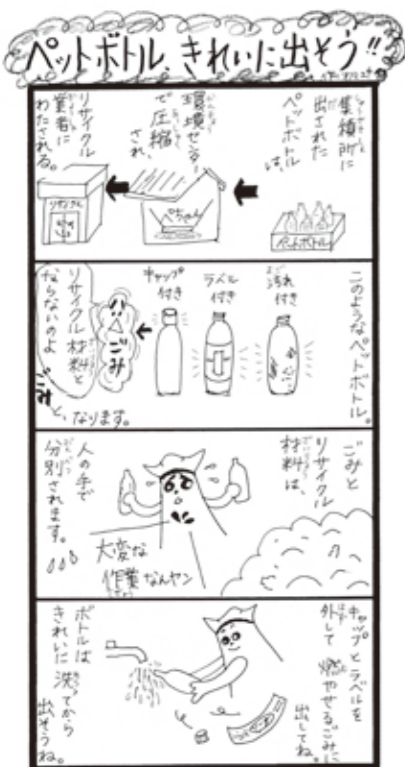 ペットボトル、きれいに出そう!!
集積所に
出された
ペットボトル
は、
環境センター
で圧縮
され、
リサイクル
業者に
わたされる。
ペットボトル
ぺちゃん
リサイクル
このようなペットボトル。
汚れ
付き
ラベル
付き
キャップ
付き
ごみ
リサイクル材料と
ならないのよ
と、なります。
ごみと
リサイクル
材料は、
人の手で
分別されます。
大変な
作業なんヤン
キャップとラベルを
外して 燃やせるごみに
出してね。
ボトルは
きれいに洗ってから
出そうね。